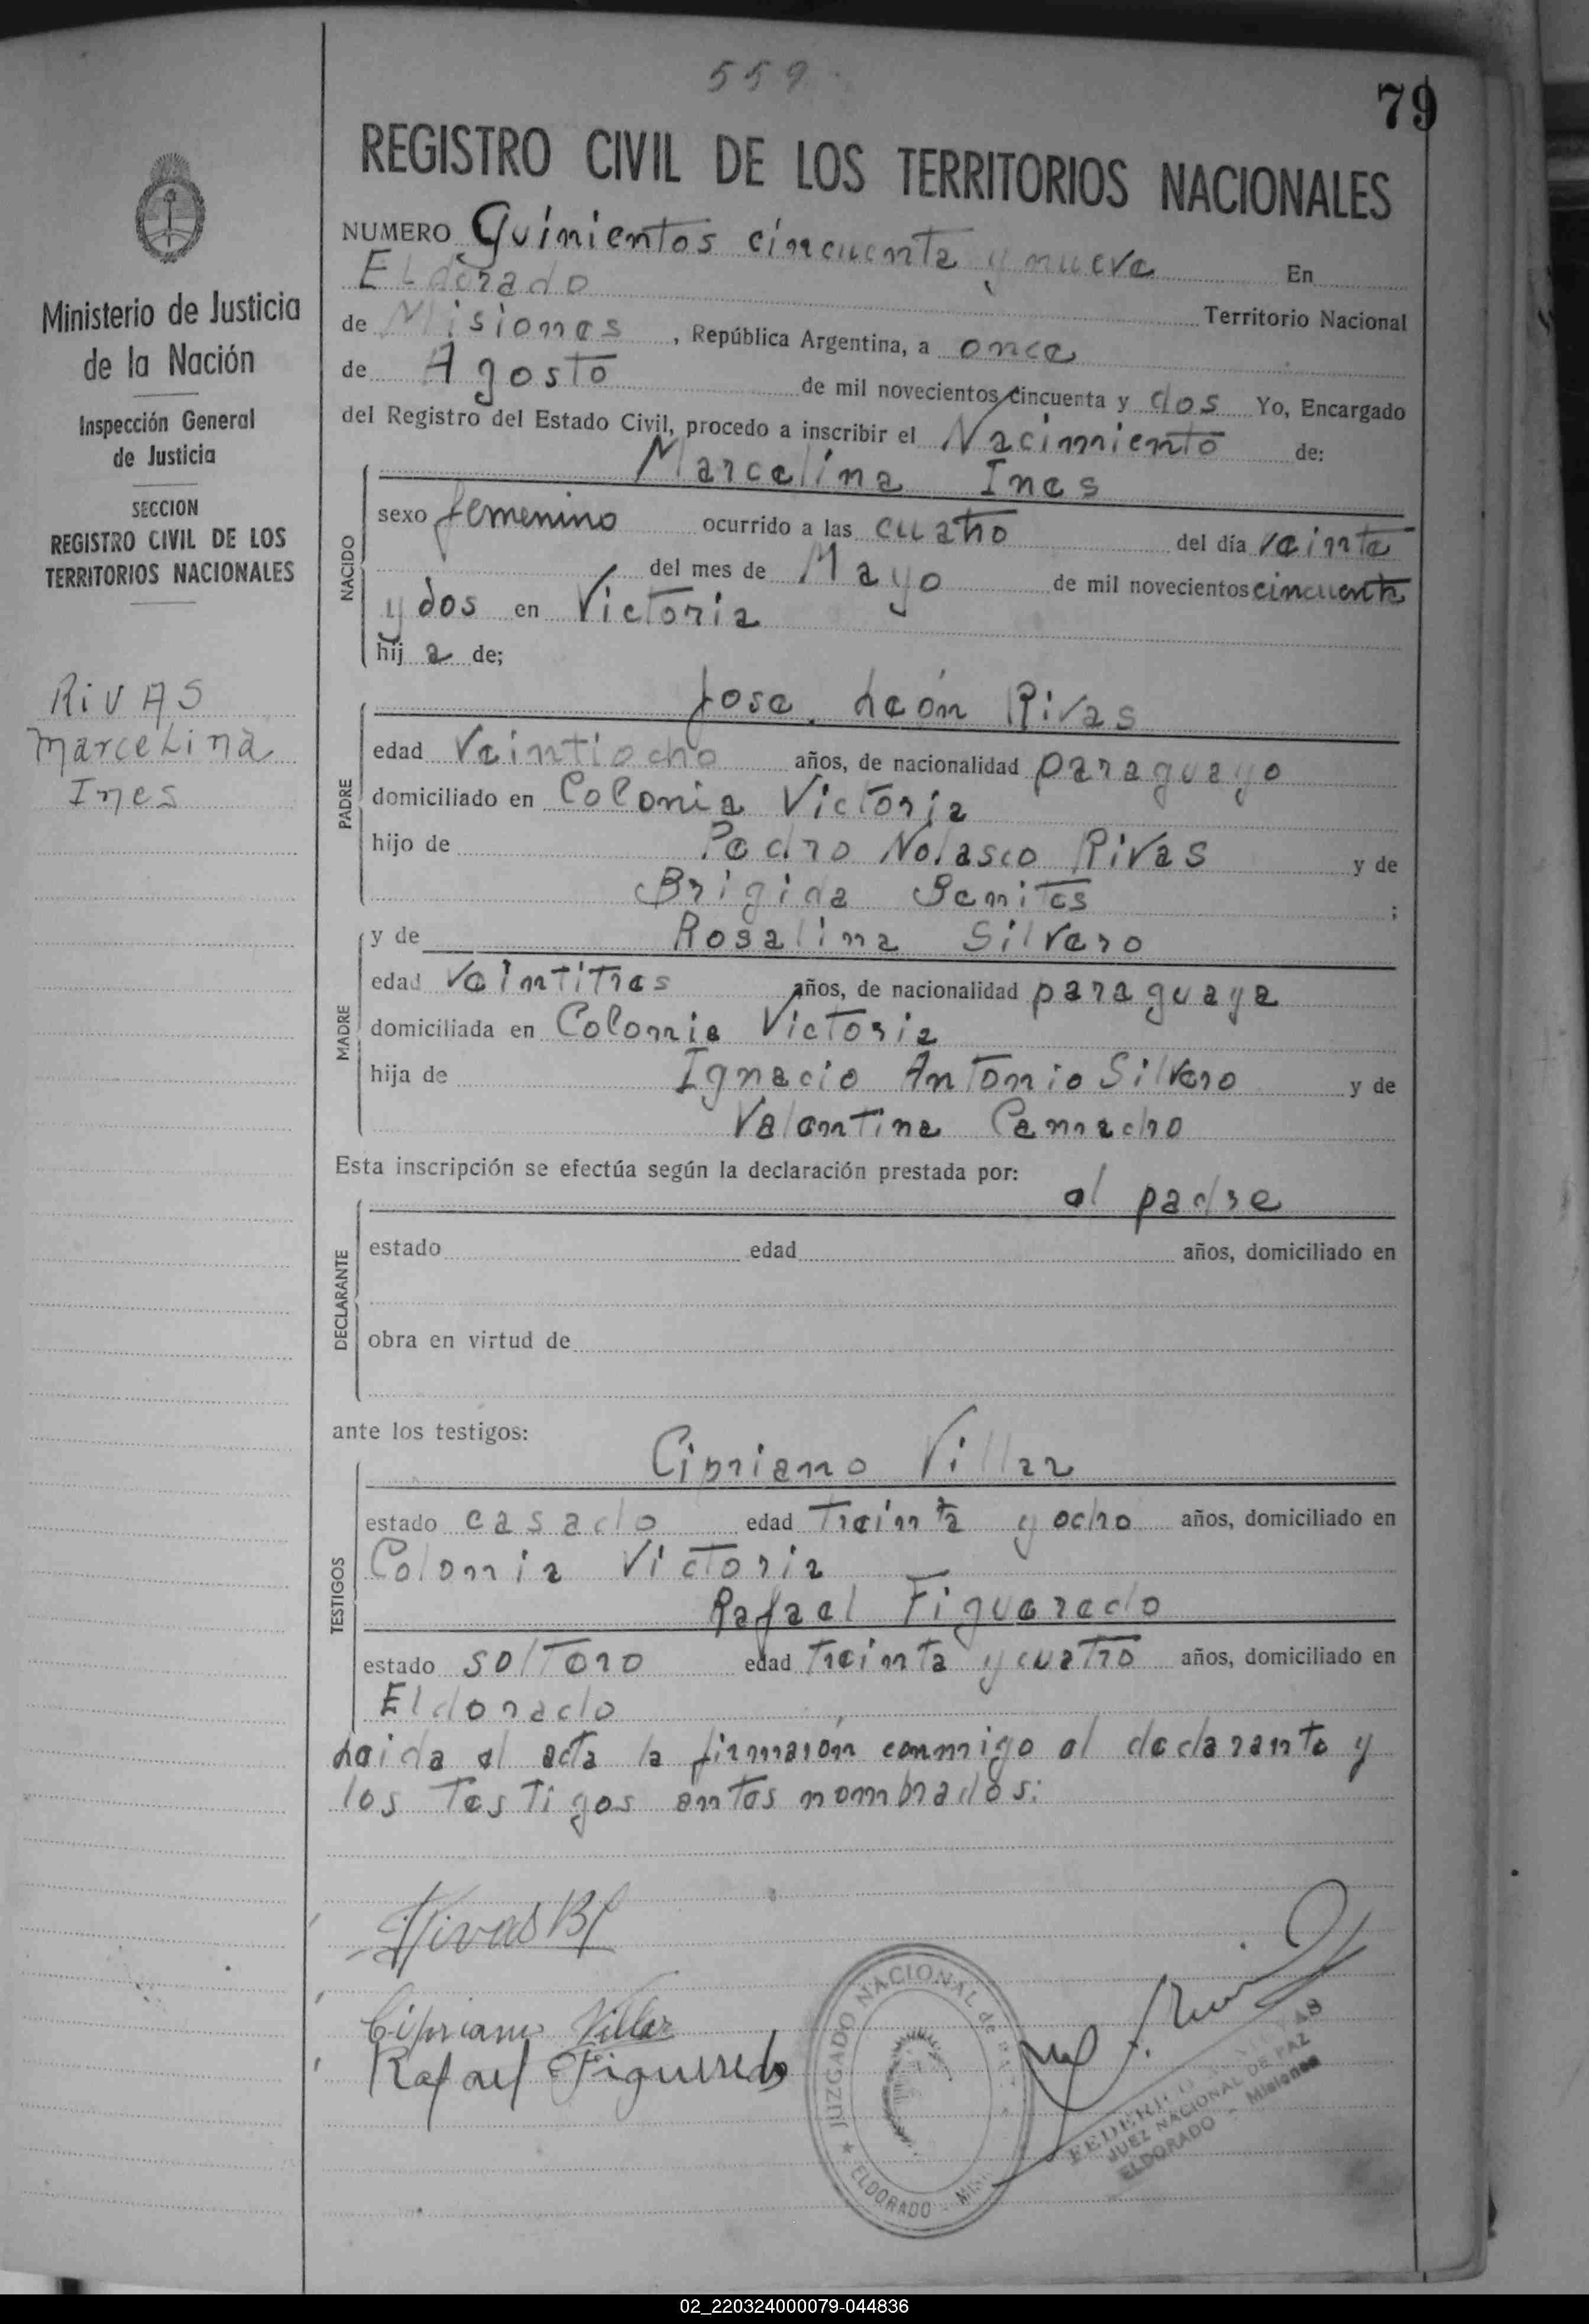 559
79
REGISTRO CIVIL DE LOS TERRITORIOS NACIONALES
Ministerio de Justicia
de la Nación
Inspección General
de Justicia
SECCION
REGISTRO CIVIL DE LOS
TERRITORIOS NACIONALES
RIVAS
Marcelina
Ines
NUMERO Quinientos cincuenta y nueve En
Eldorado Territorio Nacional
de Misiones, República Argentina, a once
de Agosto de mil novecientos cincuenta y dos Yo, Encargado
del Registro del Estado Civil, procedo a inscribir el Nacimiento de:
NACIDO
Marcelina Ines
sexo femenino ocurrido a las cuatro del día veinte
del mes de Mayo de mil novecientos cincuenta
y dos en Victoria
hij a de;
PADRE
Jose León Rivas
edad veintiocho años, de nacionalidad paraguayo
domiciliado en Colonia Victoria
hijo de Pedro Nolasco Rivas y de
Brigida Benites ;
MADRE
y de Rosalina Silvero
edad veintitres años, de nacionalidad paraguaya
domiciliada en Colonia Victoria
hija de Ignacio Antonio Silvero y de
Valentina Camacho
Esta inscripción se efectúa según la declaración prestada por:
el padre
DECLARANTE
estado edad años, domiciliado en
obra en virtud de
ante los testigos:
TESTIGOS
Cipriano Villar
estado casado edad treinta y ocho años, domiciliado en
Colonia Victoria
Rafael Figueredo
estado soltero edad treinta y cuatro años, domiciliado en
Eldorado
Leida el acta la firmarón conmigo el declarante y
los testigos antes nombrados:
Rivas
Cipriano Villar
Rafael Figueredo
JUZGADO NACIONAL de PAZ
ELDORADO - Mis
FEDERICO
JUEZ NACIONAL DE PAZ
ELDORADO - Misiones
02_220324000079-044836